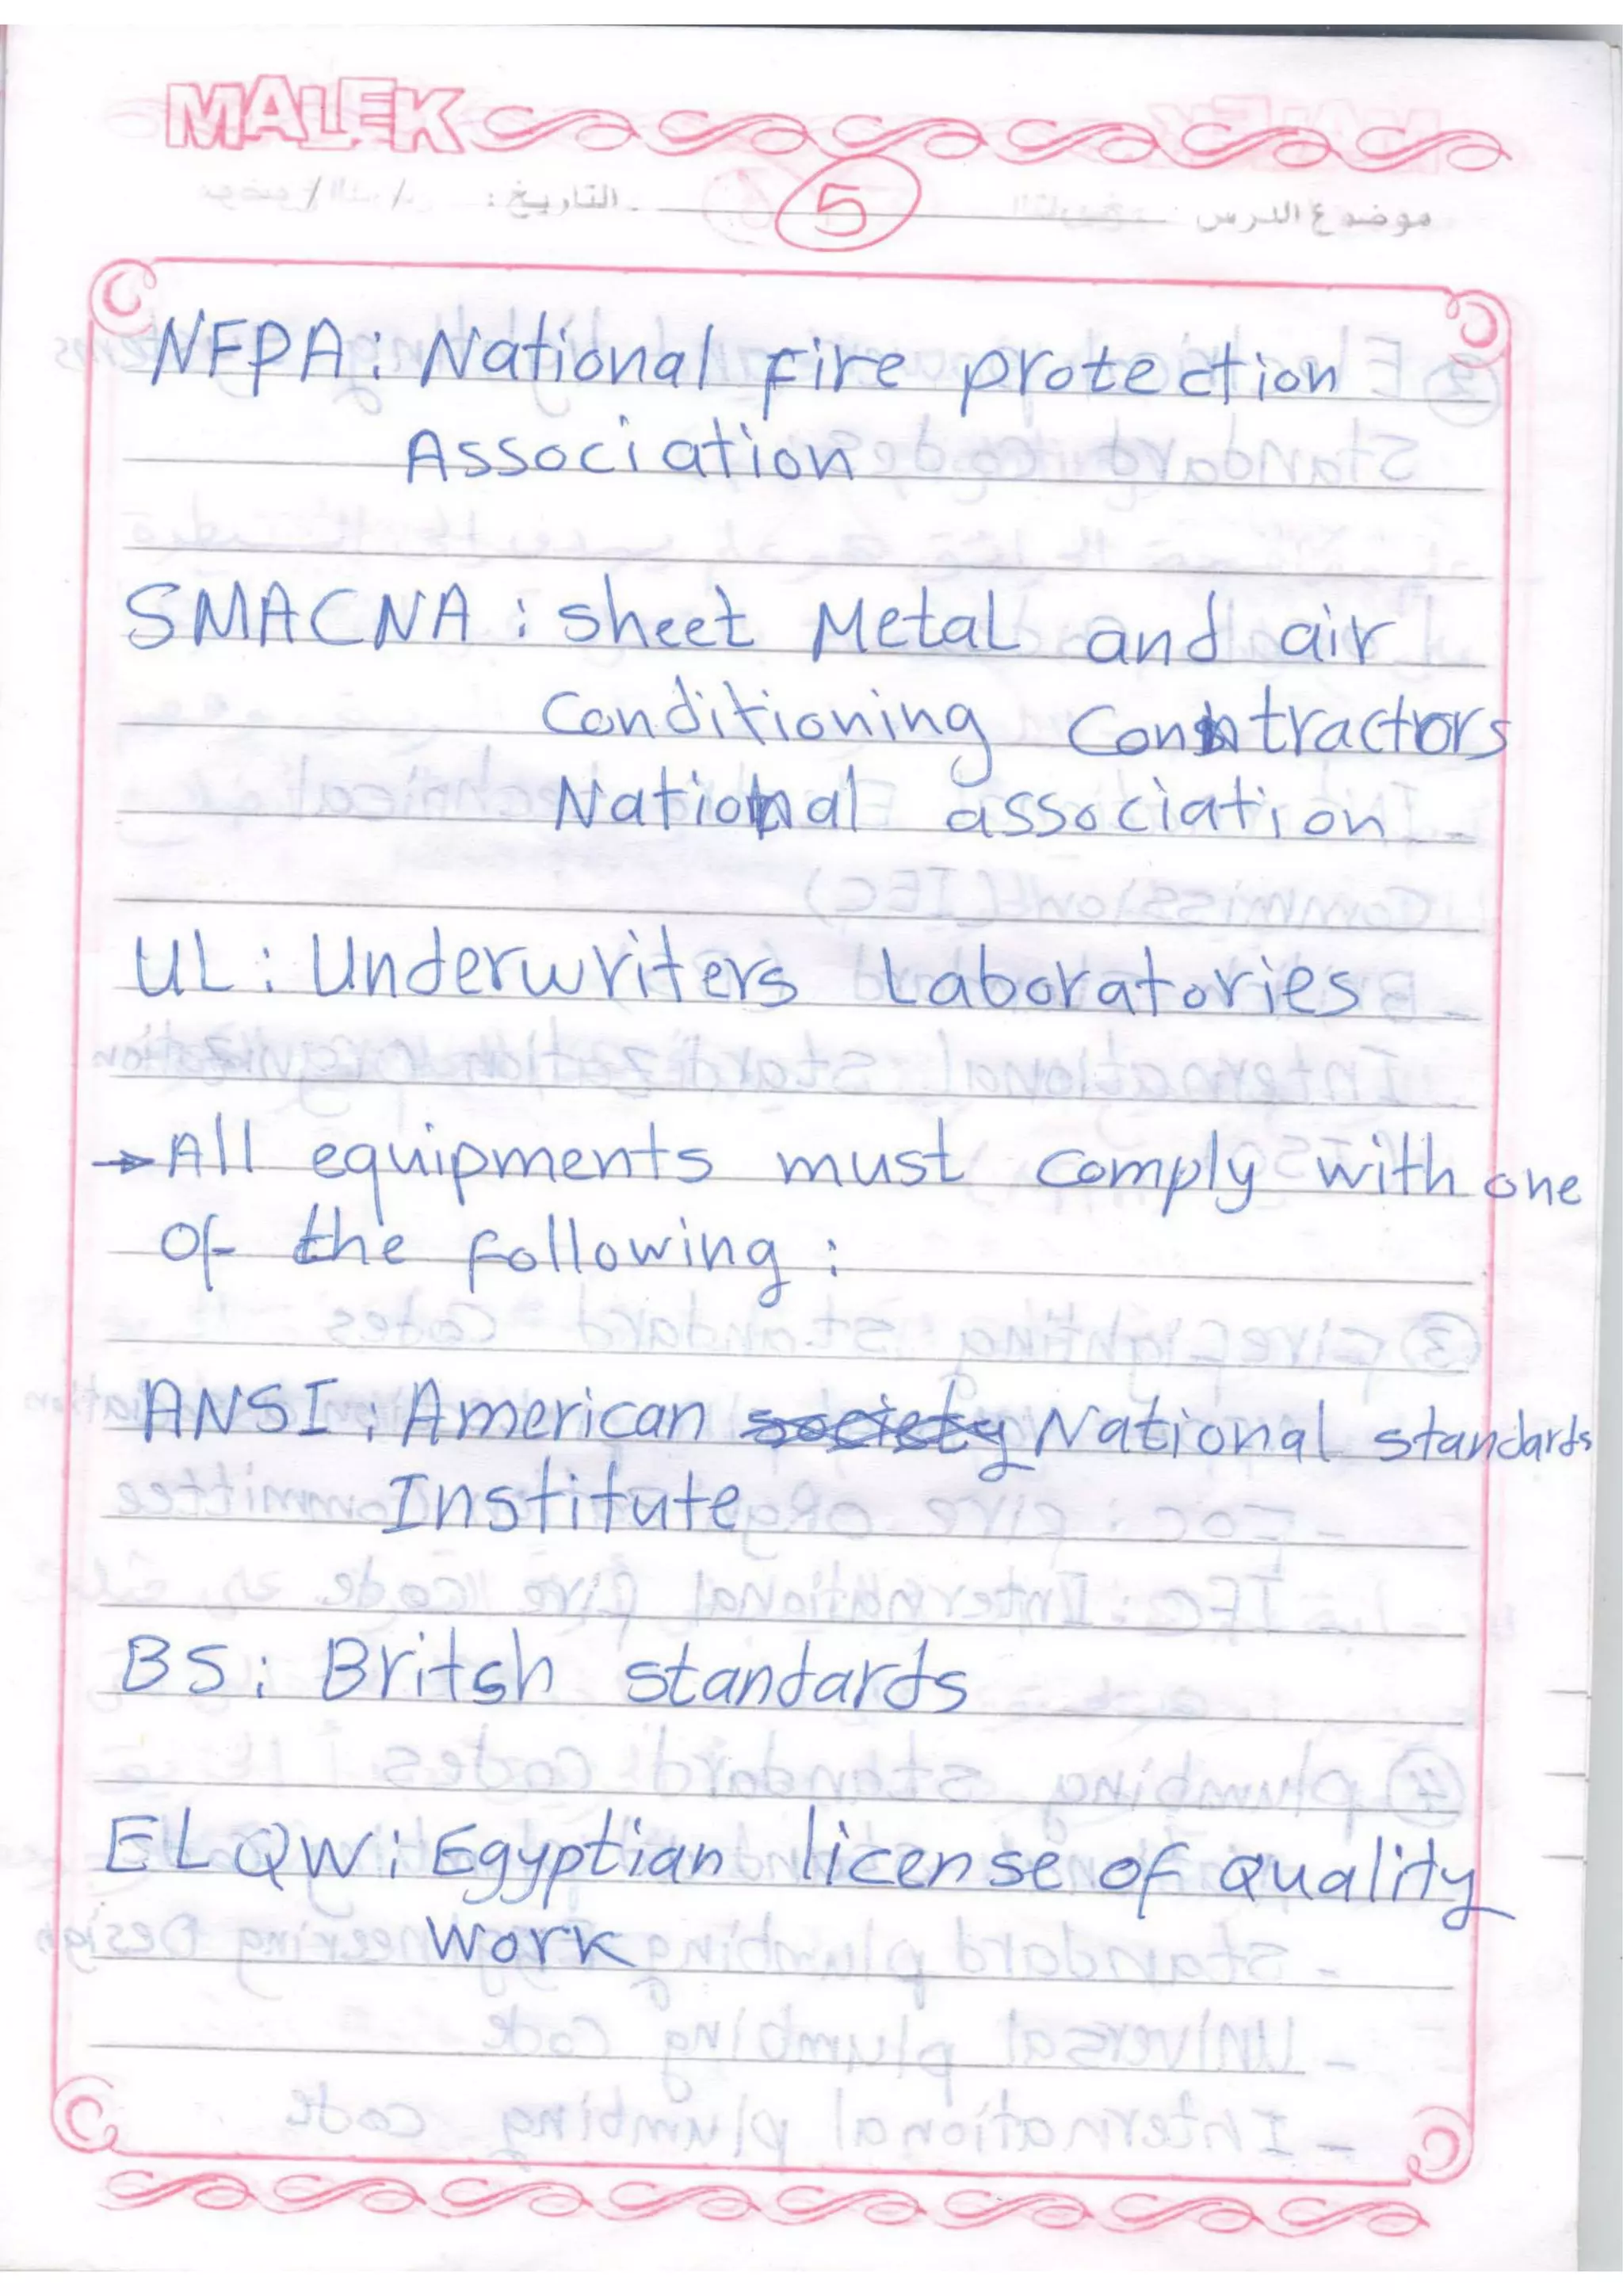 MALEK
موضوع الدرس التاريخ :
5
NFPA : National fire protection
Association
SMACNA : sheet Metal and air
Conditioning Contractors
National association
UL : Underwriters Laboratories
→ All equipments must comply with one
of the following :
ANSI : American society National standards
Institute
BS : Britsh standards
ELQW : Egyptian license of quality
work